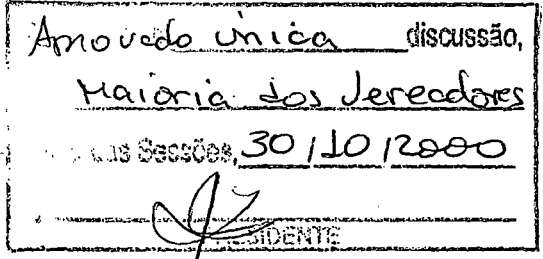 Aprovado única discussão,
Maioria dos Vereadores
das Sessões, 30/10/2000
PRESIDENTE